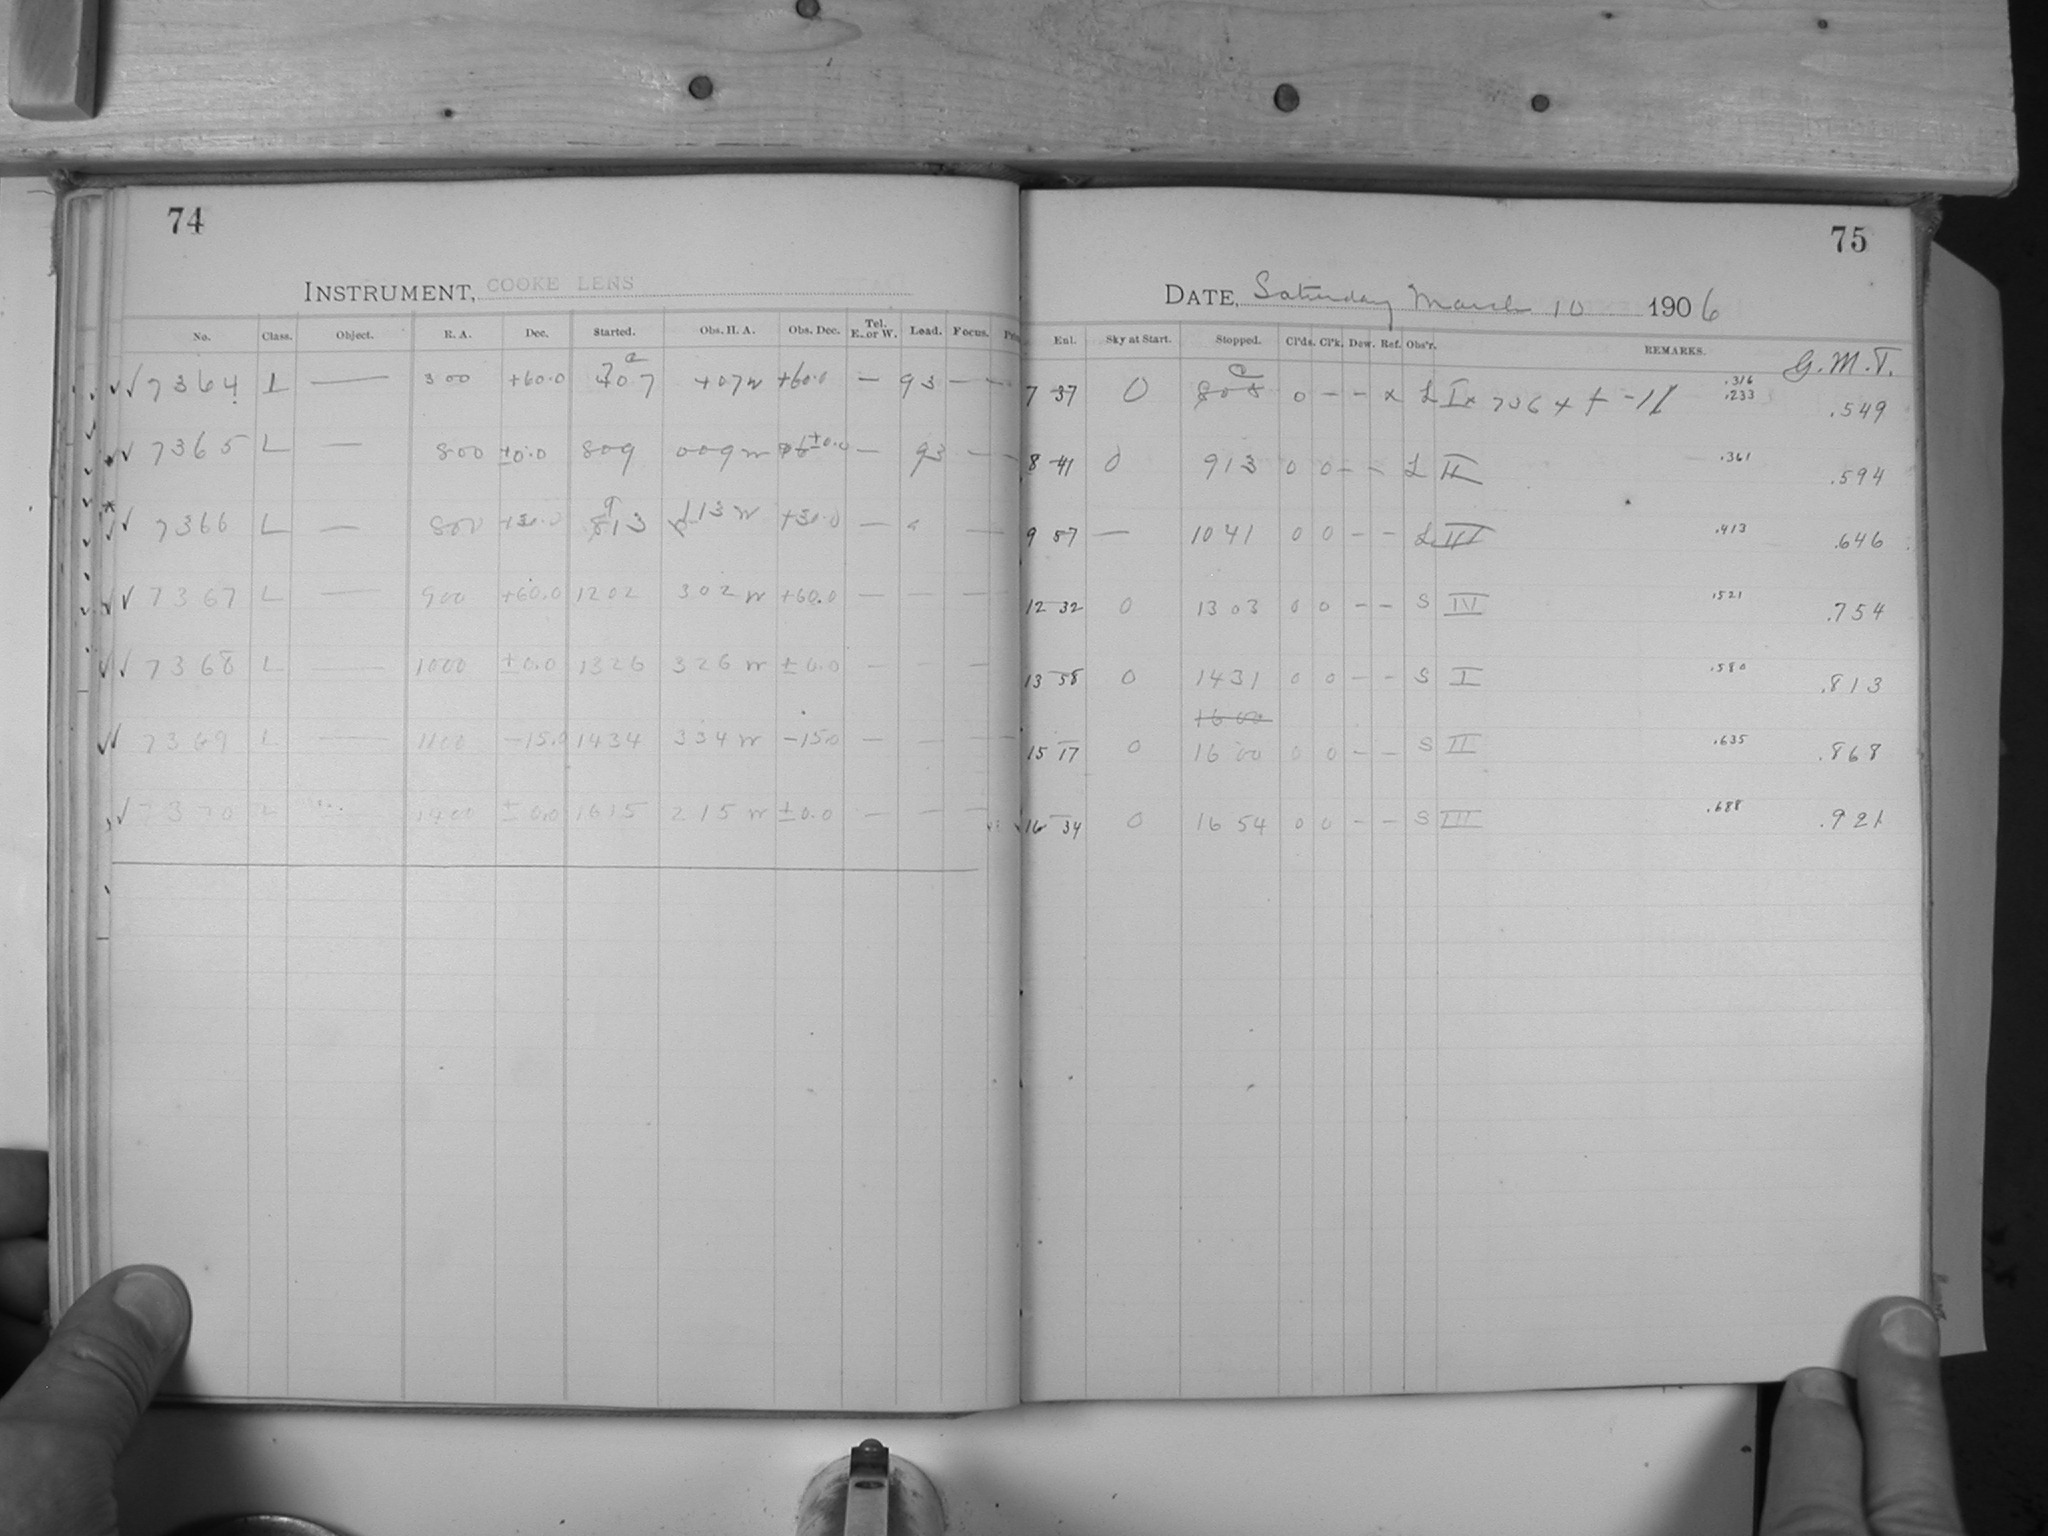 74
INSTRUMENT, COOKE LENS
No. Class. Object. R. A. Dec. Started. Obs. H. A. Obs. Dec. Tel. E. or W. Lead. Focus.
7364 L — 300 +60.0 407 407 w +60.0 — 93 — —
7365 L — 800 ±0.0 809 009 w ±0.0 — 93 — —
7366 L — 800 +30.0 913 113 w +30.0 — —
7367 L — 900 +60.0 1202 302 w +60.0 — — —
7368 L — 1000 ±0.0 1326 326 w ±0.0 — — —
7369 L — 1100 -15.0 1434 334 w -150 — — —
7370 L 1400 ±0.0 1615 215 w ±0.0 — — —
75
DATE, Saturday March 10 1906
Enl. Sky at Start. Stopped. Cl'ds. Cl'k. Dew. Ref. Obs'r. REMARKS. G.M.T.
7 37 0 808 0 — — x L I x 7364 + -11 .316 .233 .549
8 41 0 913 0 0 — — L II .361 .594
9 57 — 1041 0 0 — — L III .413 .646
12 32 0 1303 0 0 — — S IV .521 .754
13 58 0 1431 0 0 — — S I .580 .813
1600
15 17 0 1600 0 0 — — S II .635 .868
16 34 0 1654 0 0 — — S III .688 .921